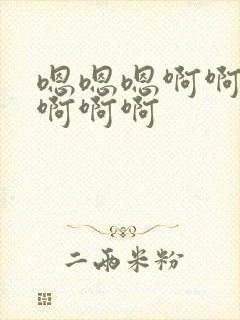 嗯嗯嗯啊啊
啊啊啊
二两米粉